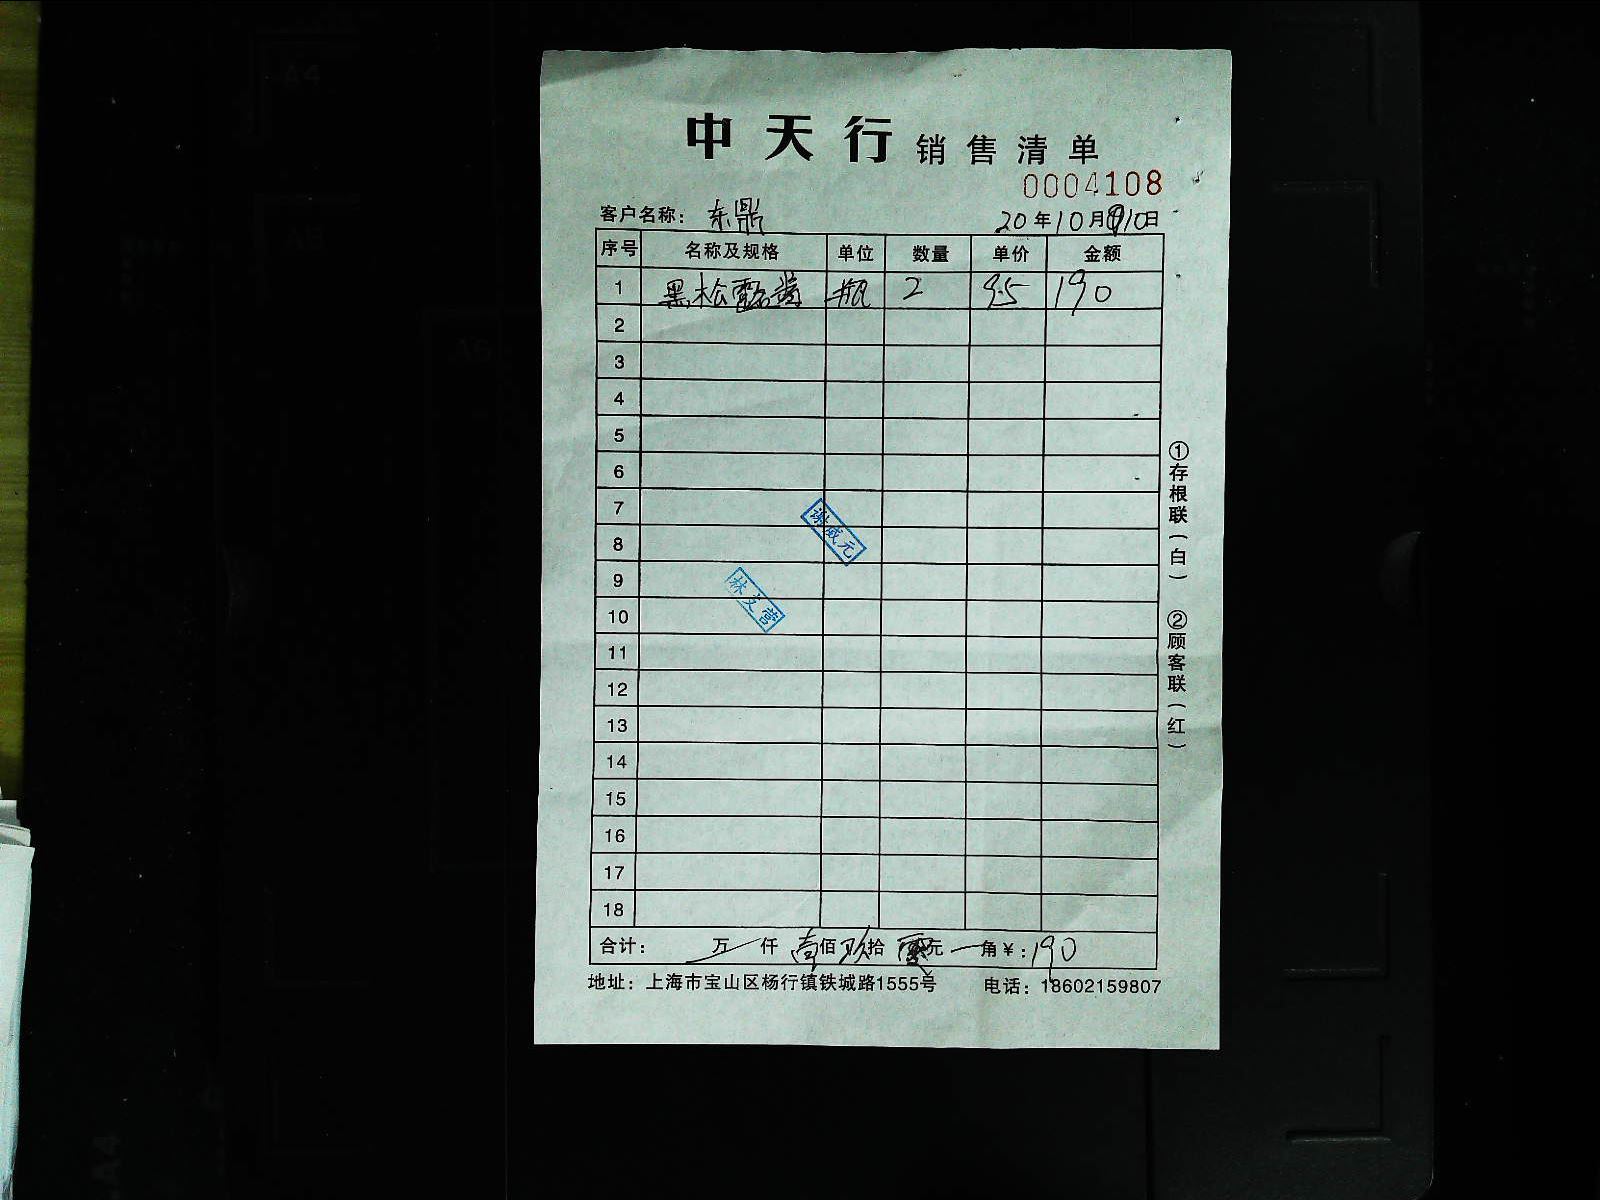 中天行 销售清单
0004108
客户名称： 东鼎 20年10月10日
序号 名称及规格 单位 数量 单价 金额
1 黑松露酱 瓶 2 95 190
2
3
4
5
6
7
8
9
10
11
12
13
14
15
16
17
18
谢威元
林文营
合计： 万 仟 壹佰 玖拾 零元 角 ¥：190
地址：上海市宝山区杨行镇铁城路1555号 电话：18602159807
①存根联（白） ②顾客联（红）
A4
A5
A6
A4